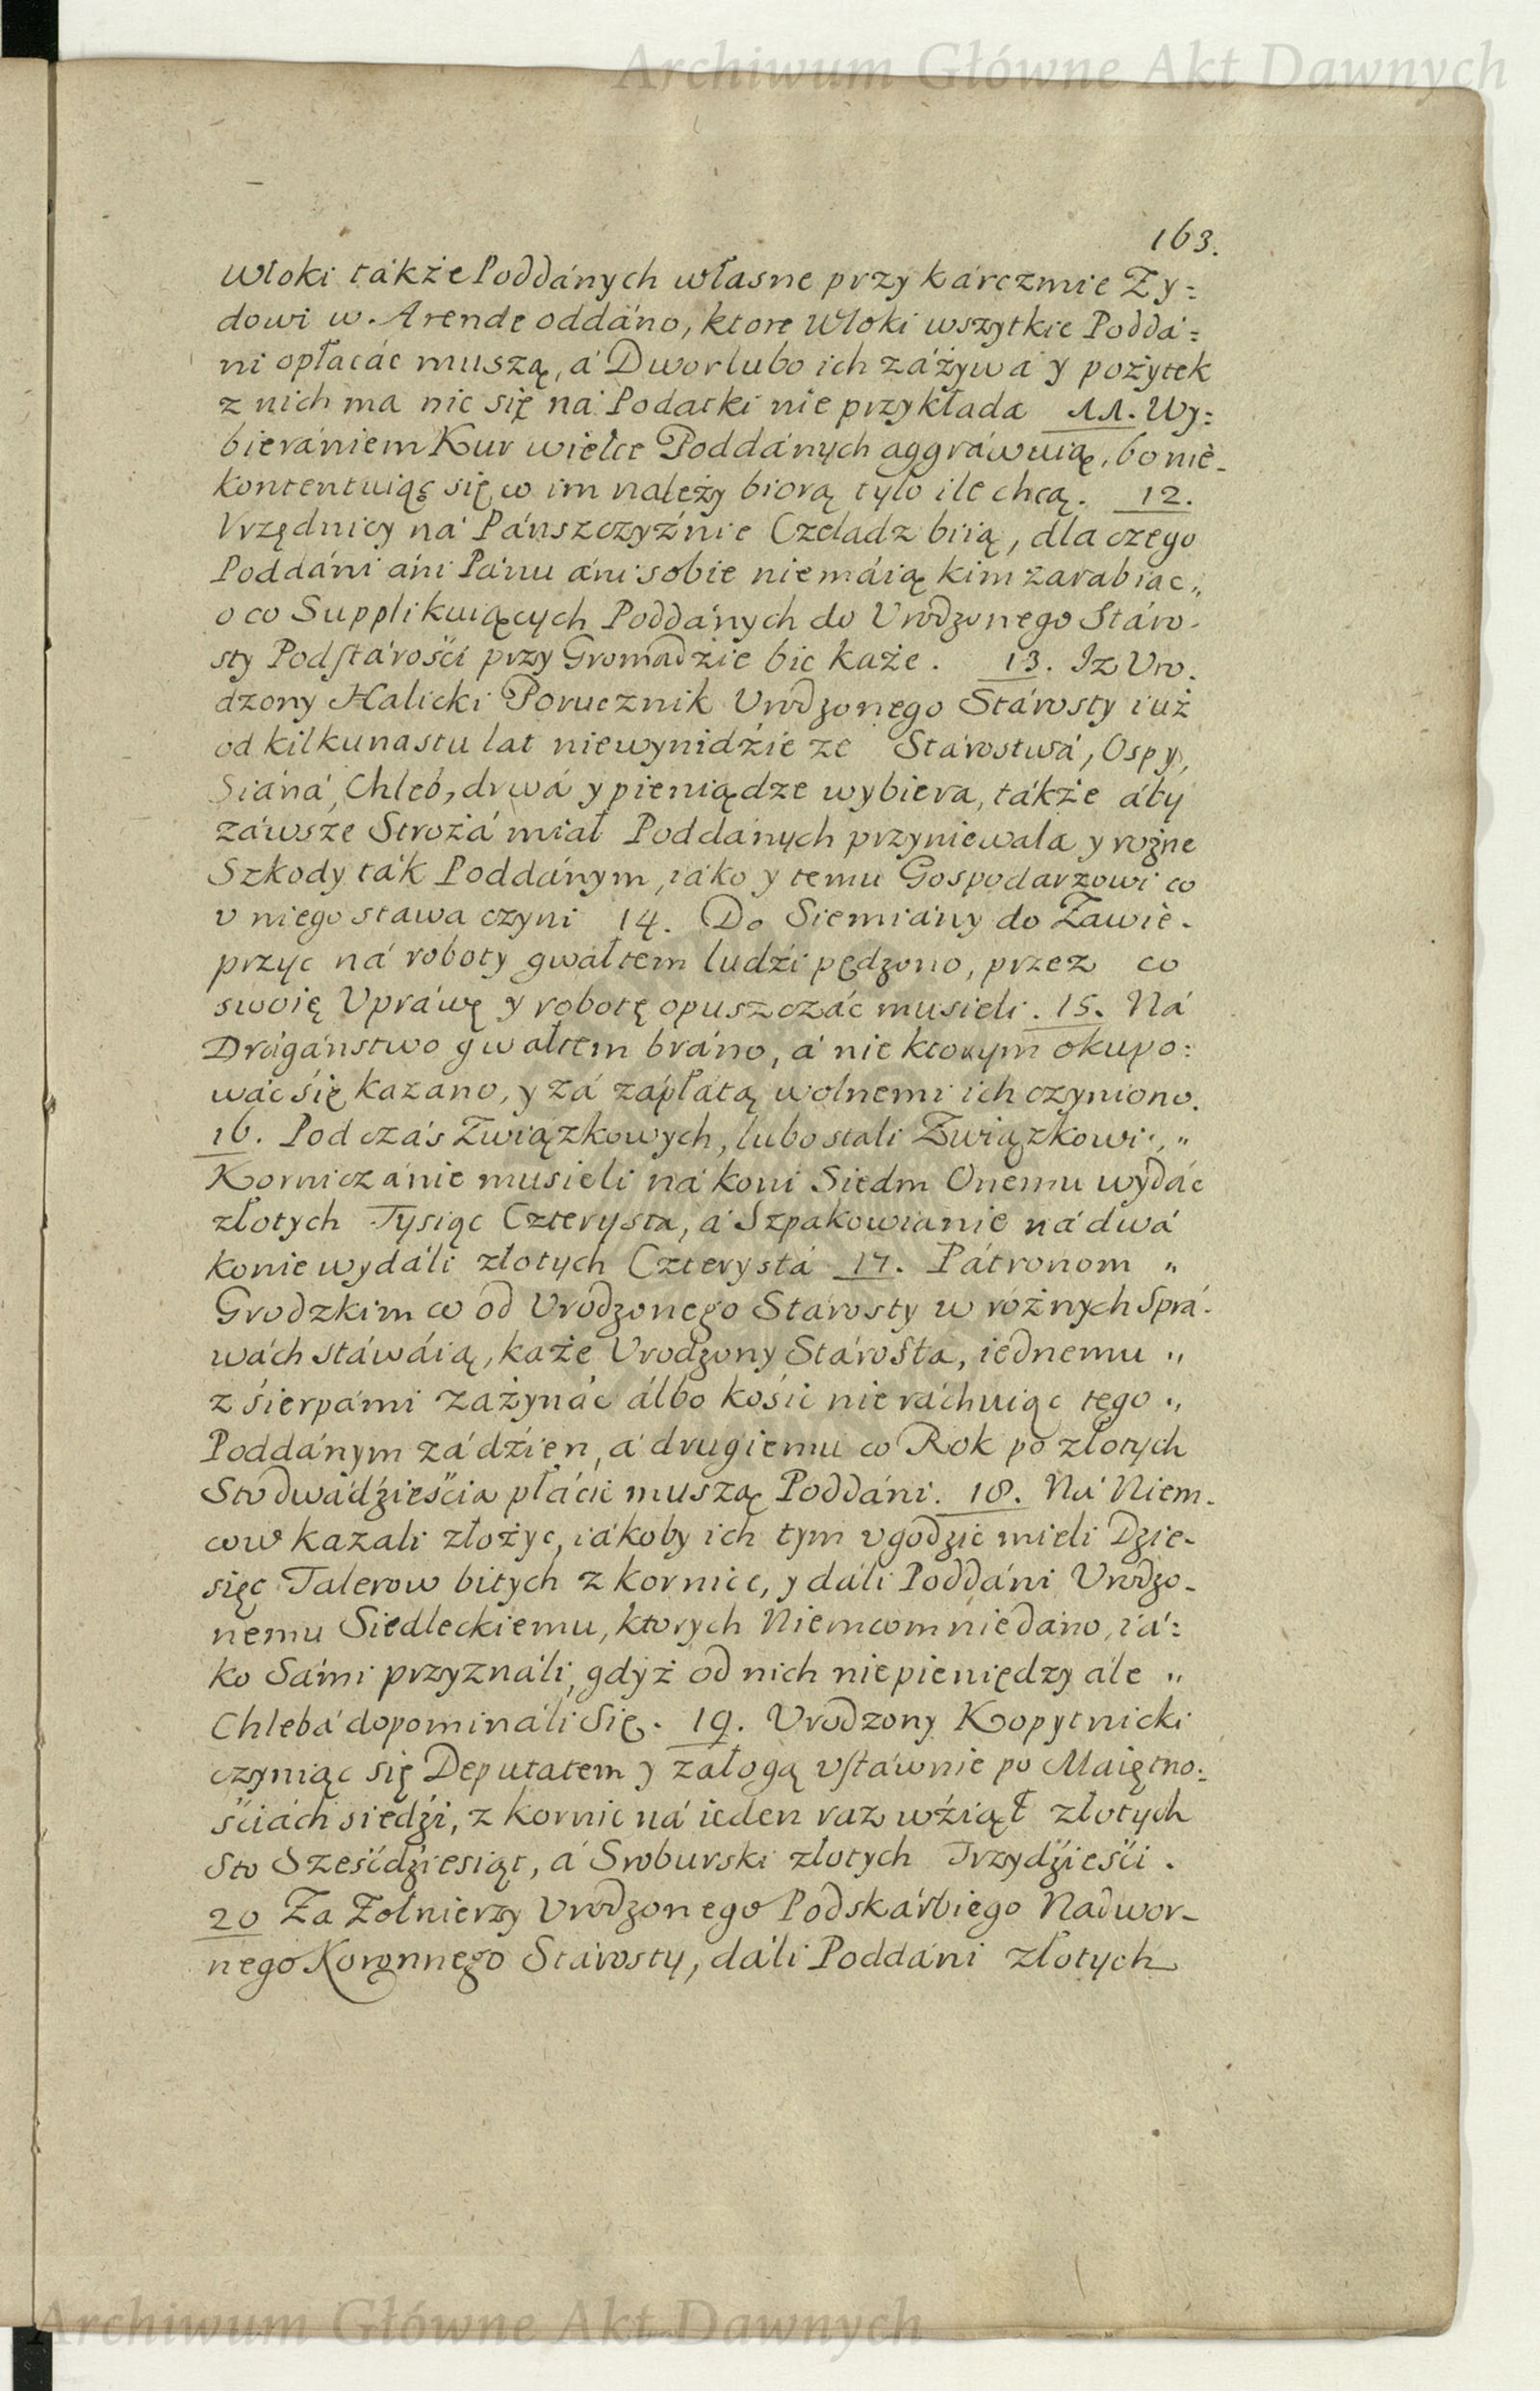 Archiwum Główne Akt Dawnych
163.
Włoki tákże Poddánych własne przy kárczmie Zy=
dowi w Arende oddáno, ktore Włoki wszytkie Poddá=
ni opłacác muszą, á Dwor lubo ich záżywa y pożytek
z nich ma nic się ná Podatki nie przykłada 11. Wy=
bierániem Kur wielce Poddánych aggráwuią, bo nie-
kontentuiąc się, co im należy biorą tylo ile chcą. 12.
Vrzędnicy ná Pánszczyźnie Czeladz biią, dla czego
Poddáni áni Pánu áni sobie niemáią kim zarabiac„
o co Supplikuiących Poddánych do Vrodzonego Stáro-
sty Podstárości przy Gromadzie bic każe. 13. Iz Vro-
dzony Halicki Porucznik Vrodzonego Stárosty iuż
od kilkunastu lat niewynidzie ze Stárostwá, Ospy,
Siáná, Chleb, drwá y pieniądze wybiera, tákże áby
záwsze Strożá miał Poddánych przyniewala y rożne
Szkody ták Poddánym, iáko y temu Gospodarzowi co
v niego stawa czyni 14. Do Siemiány do Zawie-
przyc ná roboty gwałtem ludzi pędzono, przez co
swoię Vpráwę y robotę opuszczác musieli. 15. Ná
Drágáństwo gwałtem bráno, á nie ktorym okupo=
wác się kazano, y zá zápłatą wolnemi ich czyniono.
16. Pod czás Związkowych, lubo stali Związkowi„
Korniczánie musieli ná koni Siedm Onemu wydác
złotych Tysiąc Czterysta, á Szpakowianie ná dwá
konie wydáli złotych Czterystá 17. Pátronom „
Grodzkim co od Vrodzonego Stárosty w rożnych Sprá-
wách stáwáią, każe Vrodzony Stárosta, iednemu „
z sierpámi zażynác álbo kośic nie ráchuiąc tego „
Poddánym zá dźien, á drugiemu co Rok po złotych
Sto dwádzieścia płácic muszą Poddáni. 18. Ná Niem-
cow kazali złożyc, iákoby ich tym vgodzic mieli Dzie-
sięc Talerow bitych z kornice, y dáli Poddáni Vrodzo-
nemu Siedleckiemu, ktorych Niemcom niedáno, iá=
ko Sámi przyználi, gdyż od nich niepieniędzy ále „
Chlebá dopomináli się. 19. Vrodzony Kopytnicki
czyniąc się Deputatem y załogą vstáwnie po Maiętno=
ściách siedzi, z kornic ná ieden raz wźiął złotych
Sto Sześćdziesiąt, á Sroburski złotych Trzydzieści.
20 Za Zołnierzy Vrodzonego Podskárbiego Nadwor-
nego Koronnego Stárosty, dáli Poddáni złotych
Archiwum Główne Akt Dawnych